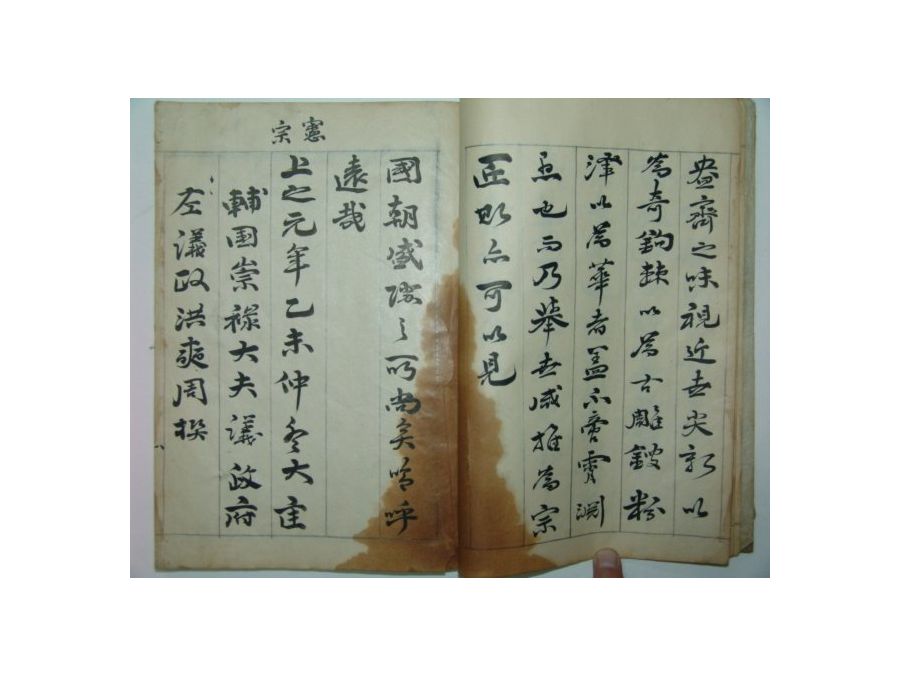 盎齊之味視近世尖新以
為奇鉤棘以為古雕鎪粉
澤以為華者蓋不啻霄淵
也而乃擧世咸推為宗
匠斯亦可以見
憲宗
國朝盛際之所尚矣嗚呼
遠哉
上之元年乙未仲冬大匡
輔国崇祿大夫議政府
左議政洪奭周撰